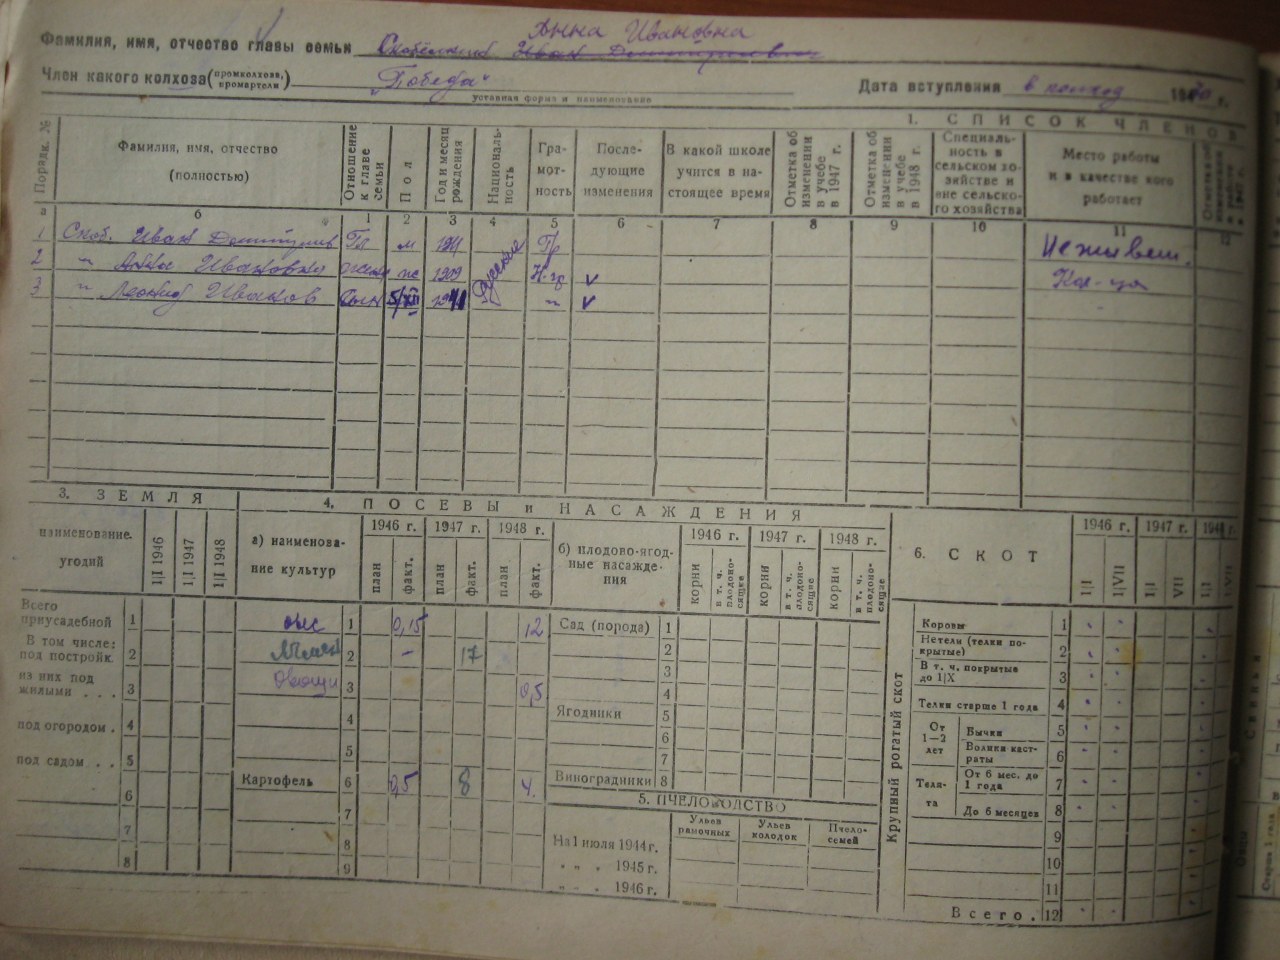 Анна Ивановна
Фамилия, имя, отчество главы семьи Иван
Член какого колхоза (промколхоза, промартели) "Победа" Дата вступления в колхоз 19 г.
уставная форма и наименование
1. СПИСОК ЧЛЕНОВ
Порядк. № Фамилия, имя, отчество (полностью) Отношение к главе семьи Пол Год и месяц рождения Национальность Грамотность Последующие изменения В какой школе учится в настоящее время Отметка об изменении в учебе в 1947 г. Отметка об изменении в учебе в 1948 г. Специальность в сельском хозяйстве и вне сельского хозяйства Место работы и в качестве кого работает
а б 1 2 3 4 5 6 7 8 9 10 11 12
1 Скоб. Иван Гл м Русские Гр Не живет.
2 " Анна Ивановна жена ж 1909 Н-гр v Кол-ца
3 " Леонид Иванов сын 5/XII 1941 " v
3. ЗЕМЛЯ 4. ПОСЕВЫ и НАСАЖДЕНИЯ
наименование угодий 1|I 1946 1|I 1947 1|I 1948 а) наименование культур 1946 г. 1947 г. 1948 г. план факт. план факт. план факт. б) плодово-ягодные насаждения 1946 г. 1947 г. 1948 г. корни в т. ч. плодоносящие корни в т. ч. плодоносящие корни в т. ч. плодоносящие 6. СКОТ 1946 г. 1947 г. 1948 г. 1|I 1|VII 1|I VII 1|I 1|VII
Всего приусадебной 1 1 0,15 12 Сад (порода) 1 Крупный рогатый скот Коровы 1
В том числе: под постройк. 2 2 - 17 2 Нетели (телки покрытые) 2
из них под жилыми . . . 3 Овощи 3 0,5 3 В т. ч. покрытые до 1|X 3
4 Телки старше 1 года 4
под огородом . 4 4 Ягодники 5 От 1—2 лет Бычки 5
под садом . . . 5 5 6 Волики кастраты 6
6 Картофель 6 0,5 8 4. 7 Телята От 6 мес. до 1 года 7
7 7 Виноградники 8 До 6 месяцев 8
8 8 5. ПЧЕЛОВОДСТВО 9
9 Ульев рамочных Ульев колодок Пчелосемей 10
На 1 июля 1944 г. 11
" " . 1945 г. Всего . 12
" " . 1946 г.